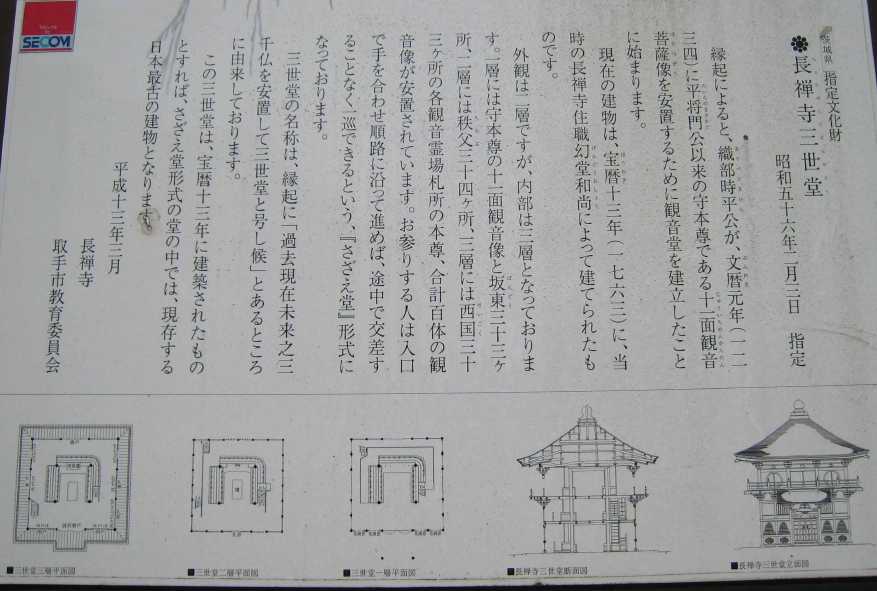 茨城県 指定文化財
長禅寺三世堂
昭和五十六年二月二日 指定
縁起によると、織部時平公が、文暦元年(一二
三四)に平将門公以来の守本尊である十一面観音
菩薩像を安置するために観音堂を建立したこと
に始まります。
現在の建物は、宝暦十三年(一七六三)に、当
時の長禅寺住職幻堂和尚によって建てられたも
のです。
外観は二層ですが、内部は三層となっておりま
す。一層には守本尊の十一面観音像と坂東三十三ヶ
所、二層には秩父三十四ヶ所、三層には西国三十
三ヶ所の各観音霊場札所の本尊、合計百体の観
音像が安置されています。お参りする人は入口
で手を合わせ順路に沿って進めば、途中で交差す
ることなく一巡できるという、『さざえ堂』形式に
なっております。
三世堂の名称は、縁起に「過去現在未来之三
千仏を安置して三世堂と号し候」とあるところ
に由来しております。
この三世堂は、宝暦十三年に建築されたもの
とすれば、さざえ堂形式の堂の中では、現存する
日本最古の建物となります。
平成十三年三月
長禅寺
取手市教育委員会
SECOM
■三世堂三層平面図
■三世堂二層平面図
■三世堂一層平面図
■長禅寺三世堂断面図
■長禅寺三世堂立面図